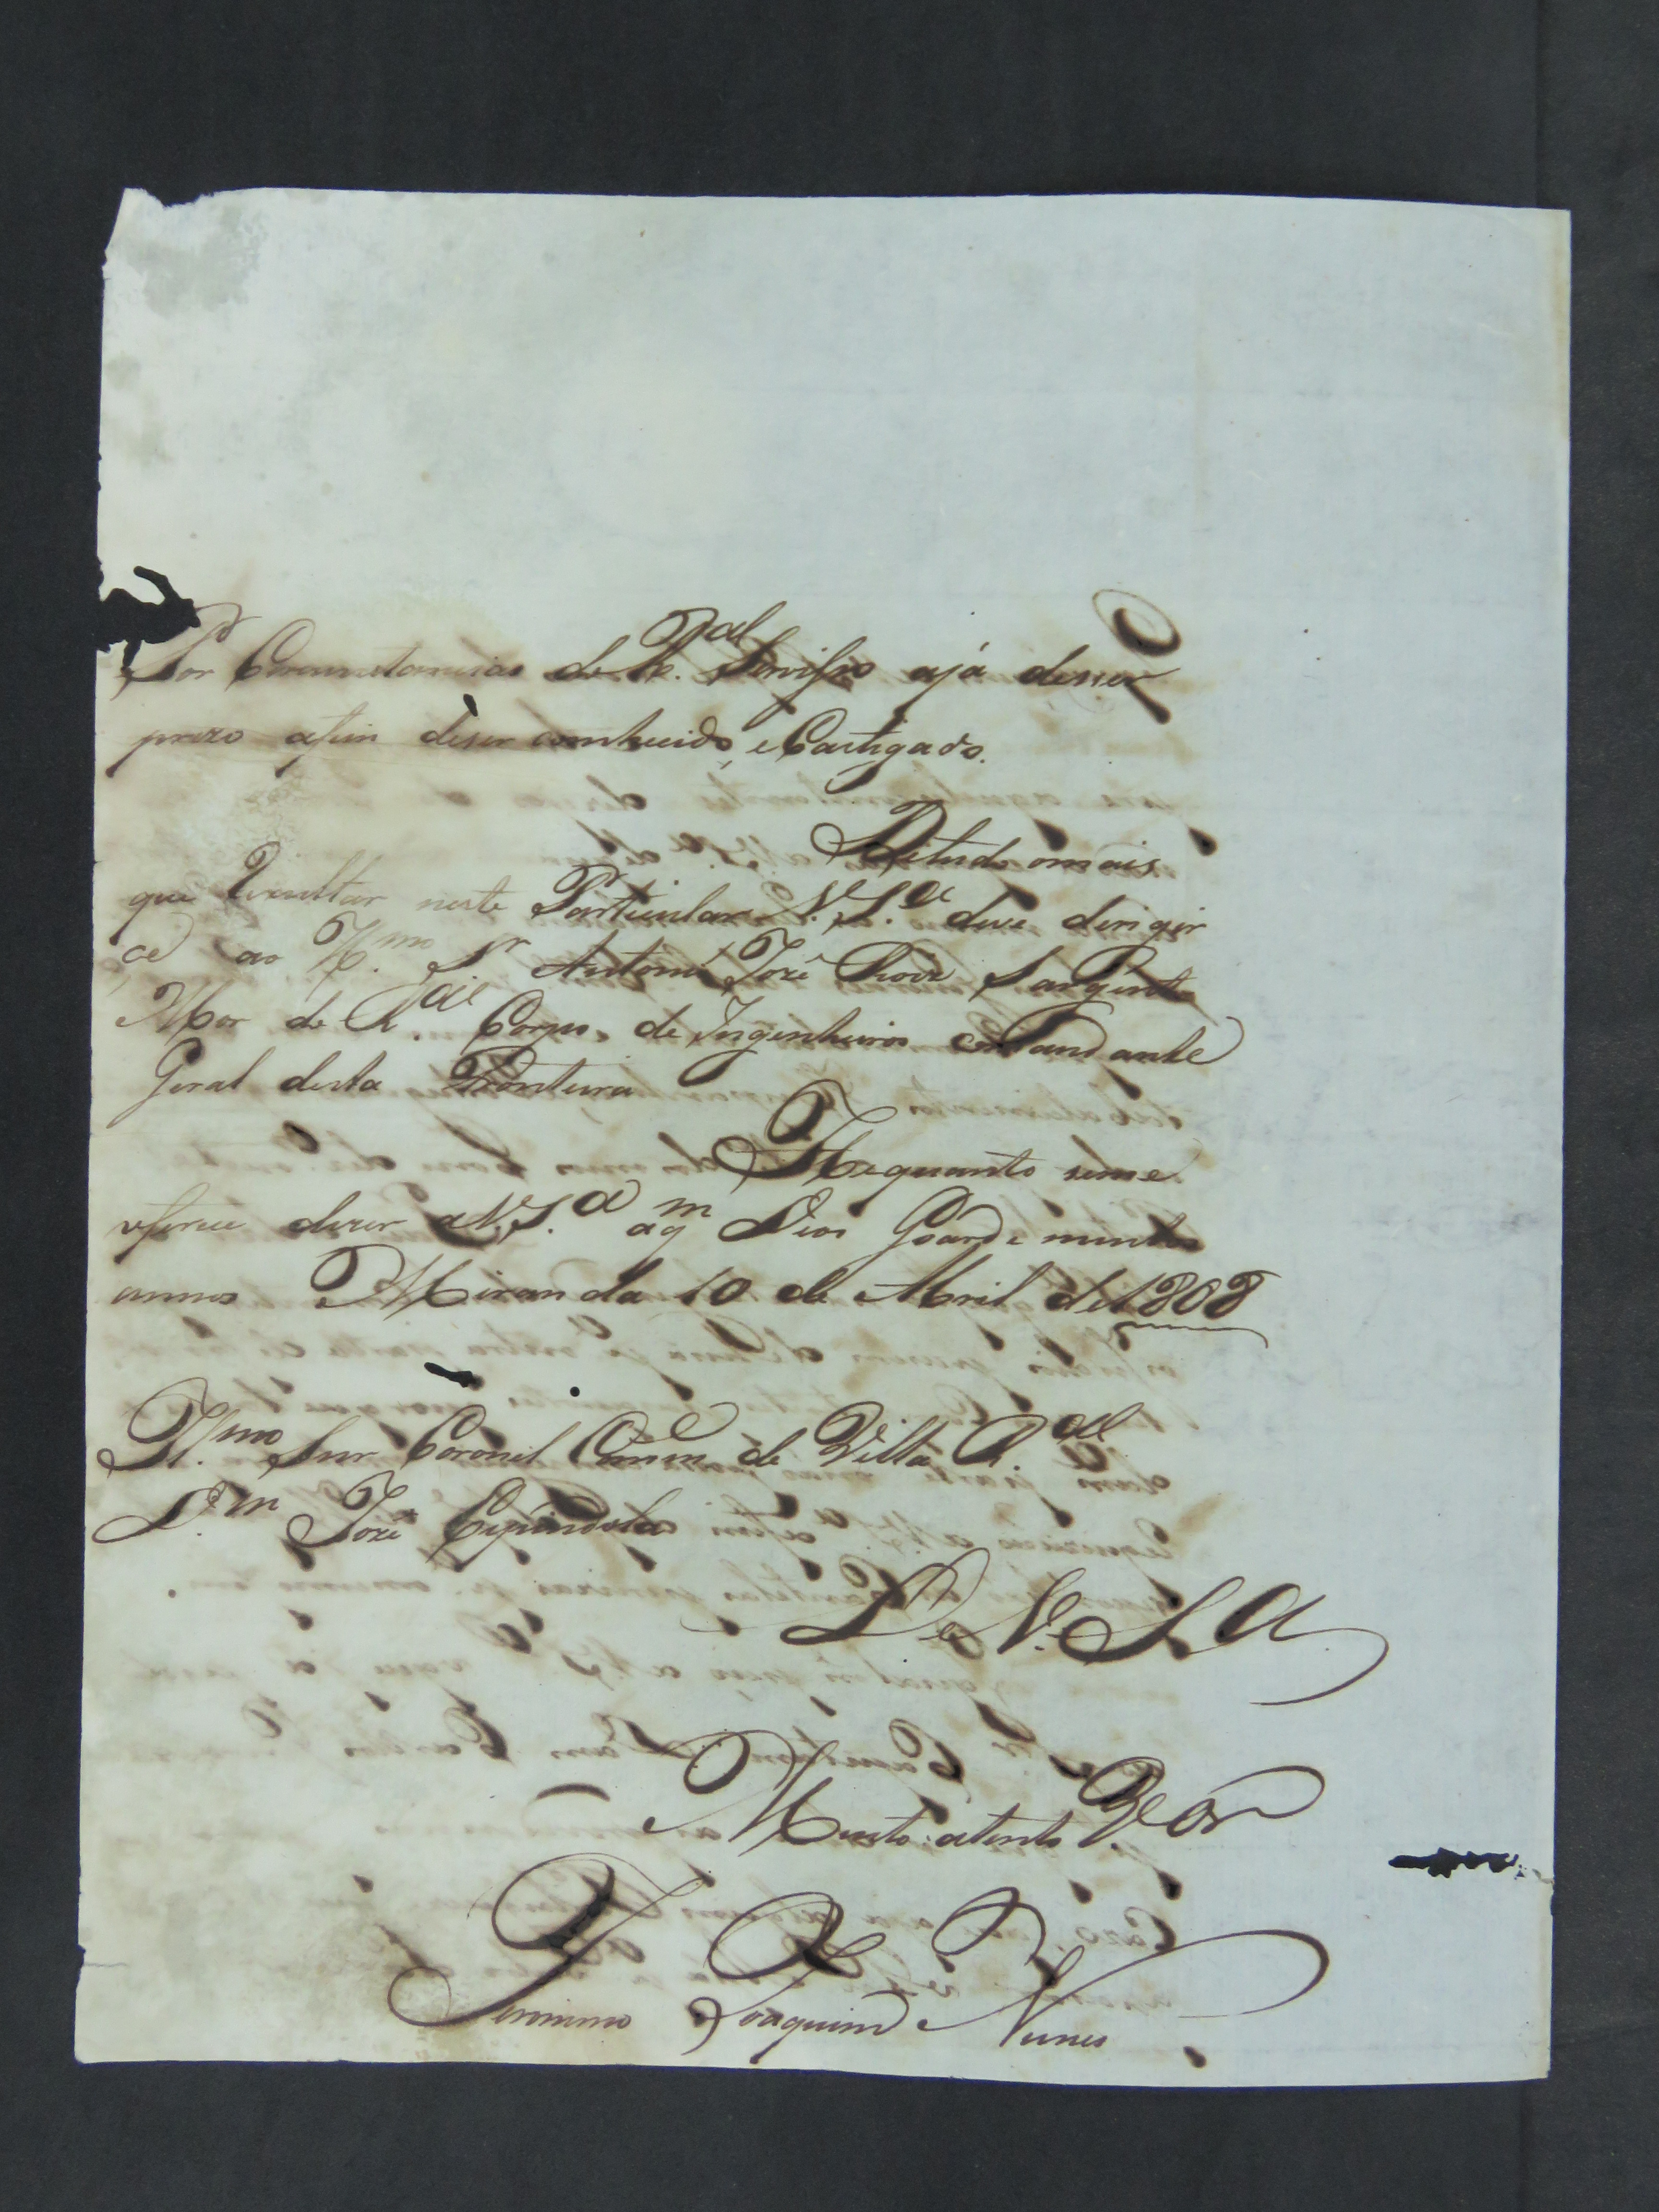 Por Circunstamcias de R.al Servisso ajá deser
prezo afim deser comhecido, e Castigado.
Ditudo omais
que Rezultar neste Particular V. S.a deve dirigir
ce ao Il.mo Sr Antonio Jozé Sargento
Mor de R.al Corpo de Ingenheiros comandante
Geral desta Fronteira
He quanto seme
oferece dizer a V. S.a aqm Deos Goarde muitos
annos Miranda 10 de Abril de 1808
Il.mo Snr Coronel Comme de Villa R.al
D.m Jozé Espindola
De V. S.a
Muito atento V.or
Jeronimo Joaquim Nunes